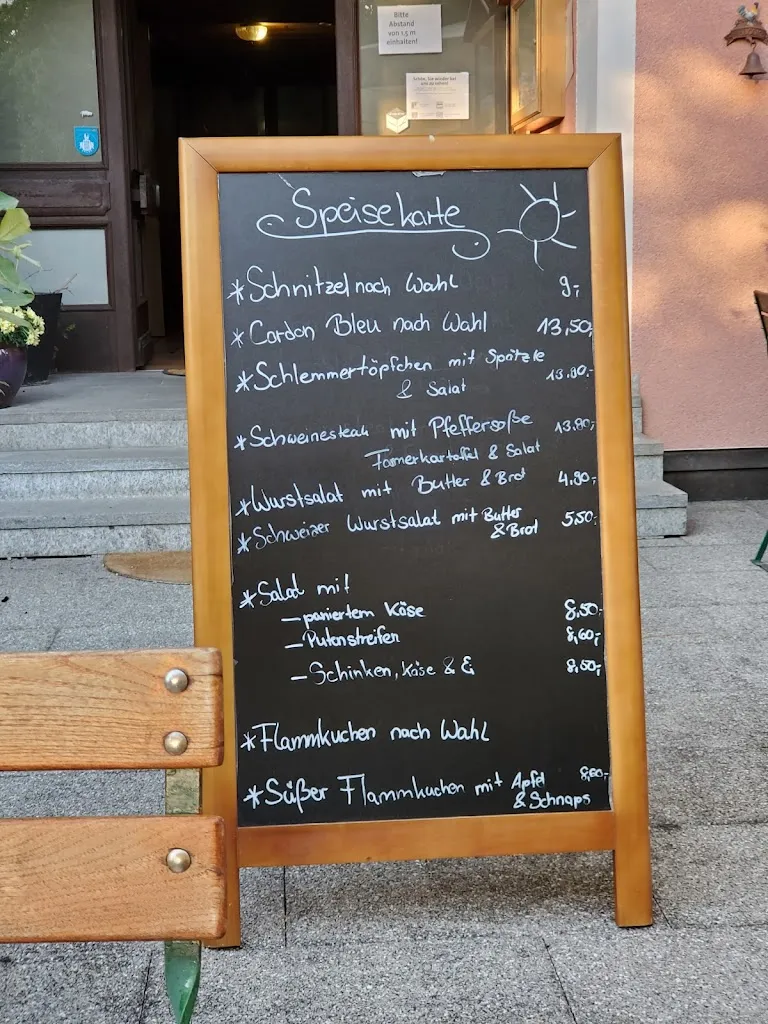 Bitte
Abstand
von 1,5 m
einhalten!
Speisekarte
*Schnitzel nach Wahl 9,-
*Cordon Bleu nach Wahl 13,50,-
*Schlemmertöpfchen mit Spätzle 13.90.-
& Salat
*Schweinesteak mit Pfeffersoße 13.90,-
Farmerkartoffel & Salat
*Wurstsalat mit Butter & Brot 4.90,-
*Schweizer Wurstsalat mit Butter 5,50,-
& Brot
*Salad mit
– paniertem Käse 8,50,-
– Putenstreifen 8,60,-
– Schinken, Käse & Ei 8,50,-
*Flammkuchen nach Wahl
*Süßer Flammkuchen mit Apfel 8,60,-
& Schnaps